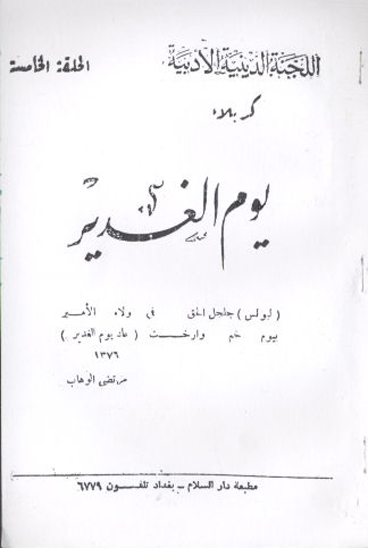 اللجنة الدينية الأدبية
الحلقة الخامسة
كربلاء
يوم الغدير
( لبولس ) جلجل الحق في ولاء الأمير
بيوم خم وارخت ( عاد يوم الغدير )
١٣٧٦
مرتضى الوهاب
مطبعة دار السلام - بغداد تلفون ٦٧٧٩